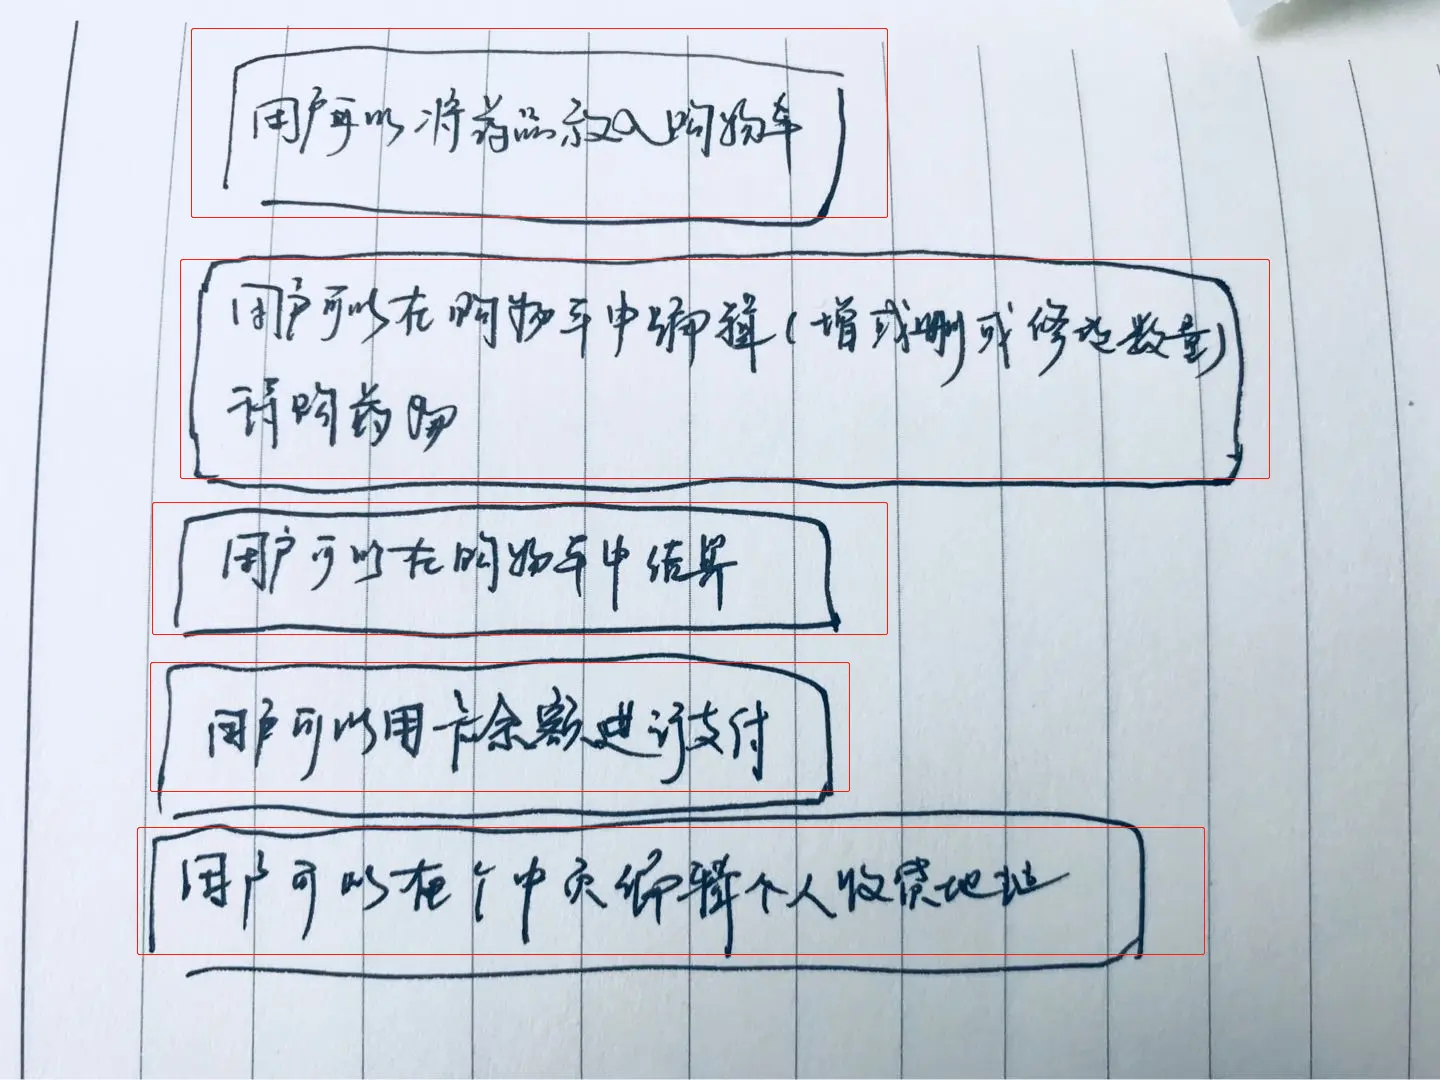 用户可以将药品放入购物车
用户可以在购物车中编辑(增或删或修改数量)
请购药物
用户可以在购物车中结算
用户可以用卡余额进行支付
用户可以在个中页编辑个人收货地址